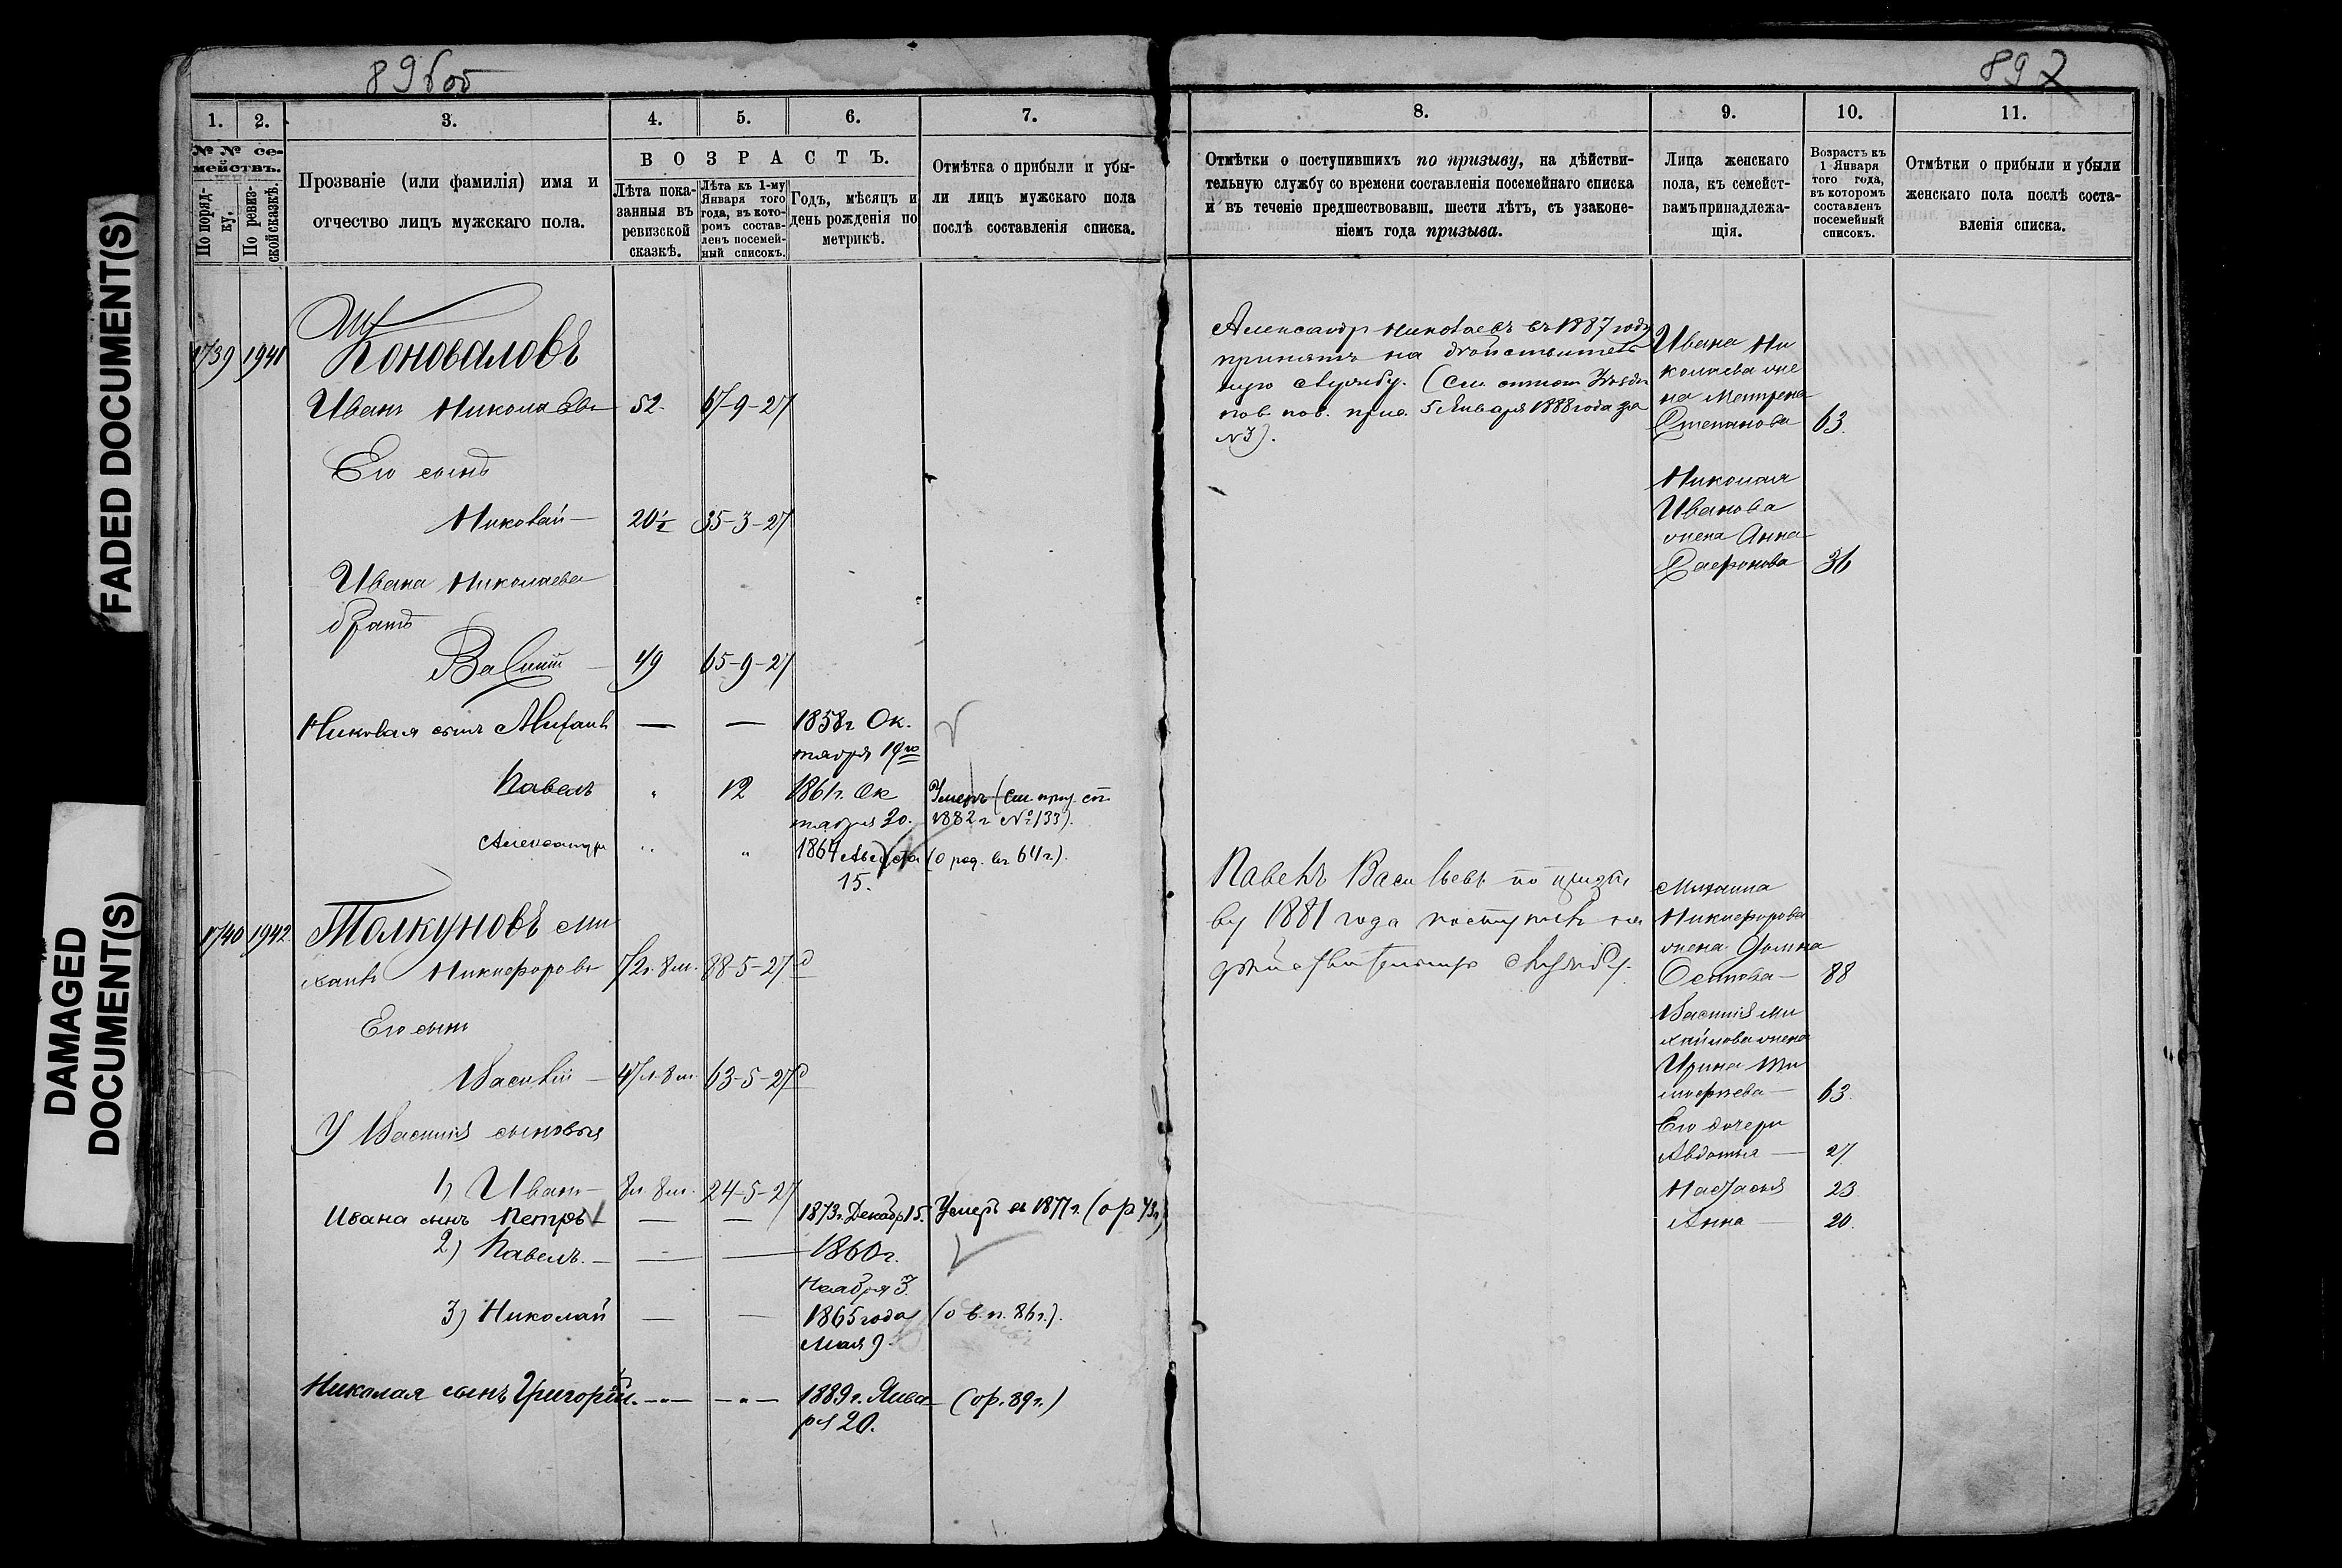 896об
897
FADED DOCUMENT(S)
DAMAGED
DOCUMENT(S)
1.
2.
3.
4.
5.
6.
7.
№ № се-
мействъ.
По поряд-
ку.
По ревиз-
ской сказкѣ.
Прозваніе (или фамилія) имя и
отчество лицъ мужскаго пола.
ВОЗРАСТЪ.
Лѣта пока-
занныя въ
ревизской
сказкѣ.
Лѣта къ 1-му
Января того
года, въ кото-
ромъ состав-
ленъ посемей-
ный списокъ.
Годъ, мѣсяцъ и
день рожденія по
метрикѣ.
Отмѣтка о прибыли и убы-
ли лицъ мужскаго пола
послѣ составленія списка.
1739 1941 Коноваловъ
Иванъ Николаевъ 52. 67-9-27
Его сынъ
Николай — 20½ 35-3-27
Ивана Николаева
братъ
Василій — 49 65-9-27
Николая сынъ Михаилъ — — 1858г Ок-
тября 19го
Павелъ " 12 1861г. Ок
тября 20. Умеръ (см. приз. сп.
1882 г. № 133).
Александръ " " 1864 Августа (о род. въ 64 г.).
15.
1740 1942 Толкуновъ Ми
хаилъ Никифоровъ 72л. 8м. 88-5-27
Его сынъ
Василій — 47л. 8м. 63-5-27
У Василія сыновья
1) Иванъ — 8л. 8м. 24-5-27
Ивана сынъ Петръ — — — 1873г. Декабр 15. Умеръ въ 1877 г. (о р 73г)
2) Павелъ. — — — 1860г.
Ноября 3.
3) Николай — — 1865 года (о в. п. 86 г.).
Мая 9.
Николая сынъ Григорій. — — 1889 г. Янва- (о р. 89 г.)
ря 20.
8.
9.
10.
11.
Отмѣтки о поступившихъ по призыву, на дѣйстви-
тельную службу со времени составленія посемейнаго списка
и въ теченіе предшествовавш. шести лѣтъ, съ узаконе-
ніемъ года призыва.
Лица женскаго
пола, къ семейст-
вамъ принадлежа-
щія.
Возрастъ къ
1 Января
того года,
въ которомъ
составленъ
посемейный
списокъ.
Отмѣтки о прибыли и убыли
женскаго пола послѣ соста-
вленія списка.
Александръ Николаевъ въ 1887 году
принятъ на действитель
ную службу. (См.
пов. прис. 5 Января 1888 года за
№ 3).
Ивана Ни
колаева же
на Матрена
Степанова 63.
Николая
Иванова
жена Анна
Сафронова 36
Павелъ Васильевъ по призы
ву 1881 года поступилъ на
дѣйствительную службу.
Михаила
Никифорова
жена Домна
Осипова — 88
Василія Ми
хайлова жена
Ирина Ти
мофеева — 63.
Его дочери
Авдотья — 27
Настасья 23
Анна — 20.